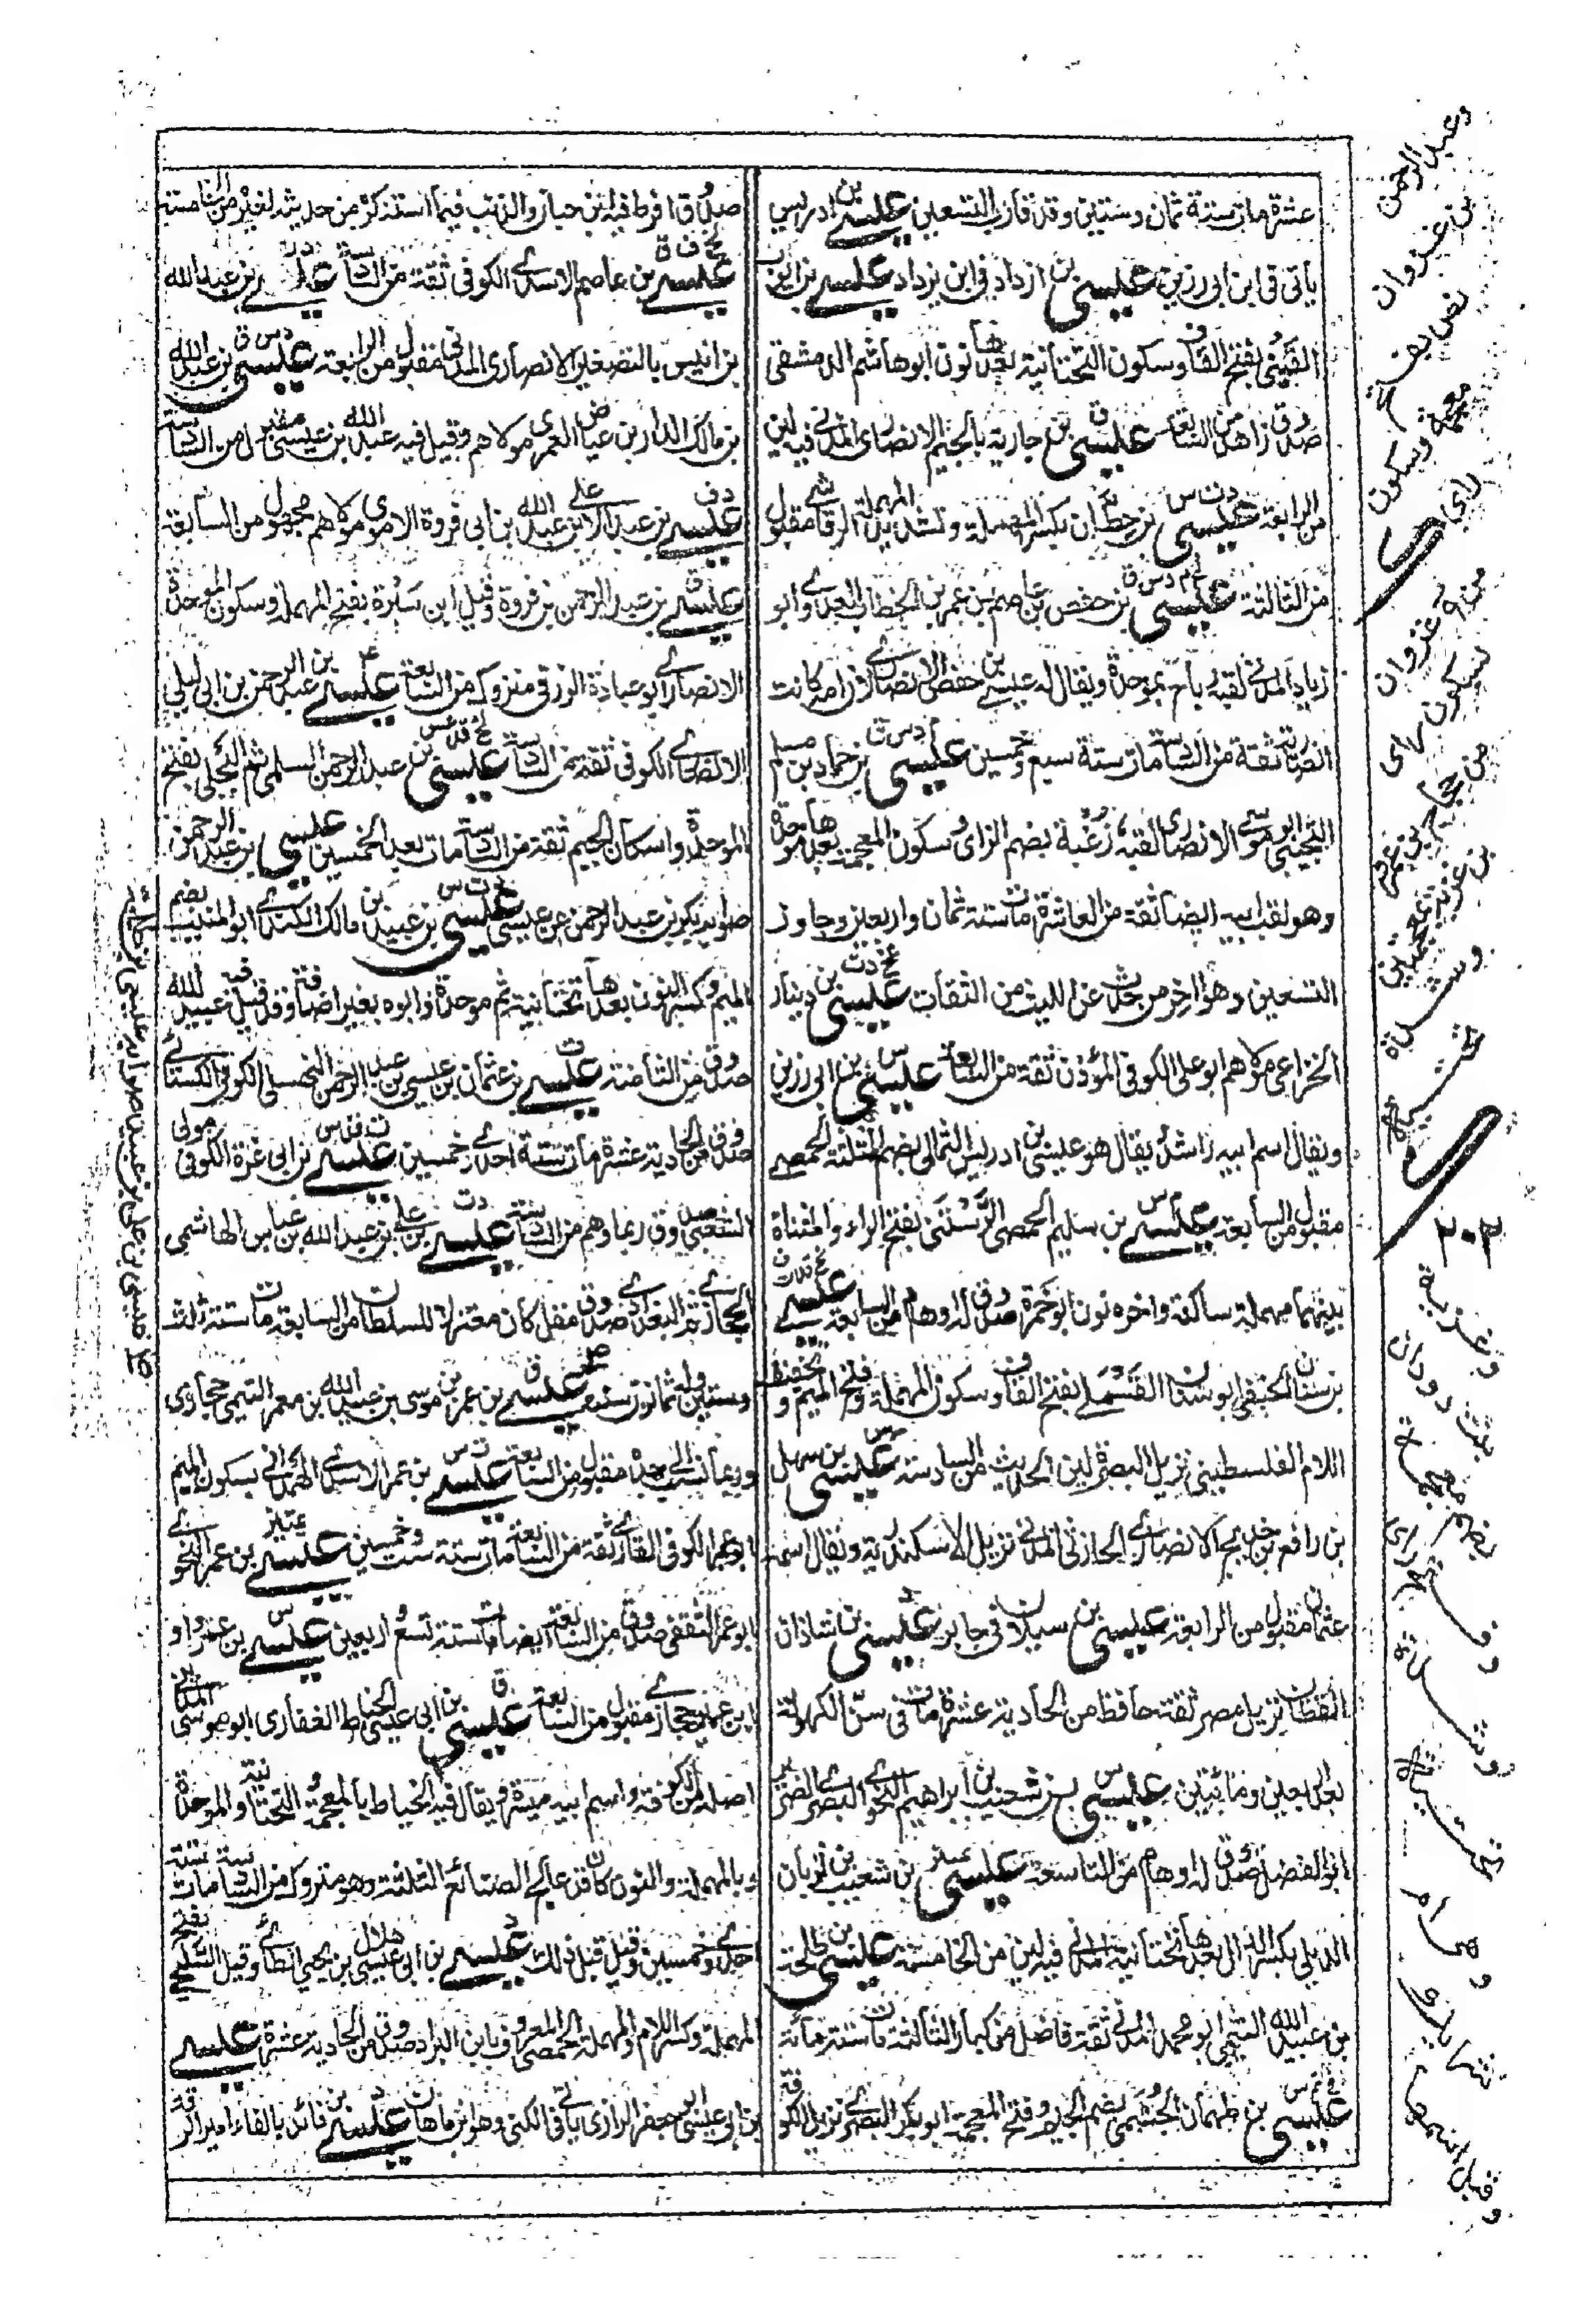 عشرة مات سنة ثمان وستين وقد قارب التسعين عيسى بن ادريس
ياتى فى ابن ابى رزين عيسى بن ازداد فى ابن يزداد عيسى بن ايوب
القينى بفتح القاف وسكون التحتانية بعدها نون ابو هاشم الدمشقى
صدوق زاهد من التاسعة عيسى بن جارية بالجيم الانصارى المدنى فيه لين
من الرابعة عيسى بن حطان بكسر المهملة وتشديد المهملة الرقاشى مقبول
من الثالثة عيسى بن حفص بن عاصم بن عمر بن الخطاب العدوى ابو
زياد المدنى لقبه رباح بموحدة ويقال له عيسى بن حفص الانصارى لان امه كانت
انصارية ثقة من السادسة مات سنة سبع وخمسين عيسى بن حماد بن مسلم
التجيبى ابو موسى الانصارى لقبه زغبة بضم الزاى وسكون المعجمة بعدها موحدة
وهو لقب ابيه ايضا ثقة من العاشرة مات سنة ثمان واربعين وجاوز
التسعين وهو اخر من حدث عن الليث من الثقات عيسى بن دينار
الخزاعى مولاهم ابو على الكوفى المؤذن ثقة من السابعة عيسى بن ابى رزين
ويقال اسم ابيه راشد يقال هو عيسى بن ادريس الثمالى بضم المثلثة الحمصى
مقبول من السابعة عيسى بن سليم الحمصى الرستنى بفتح الراء والمثناة
بينهما مهملة ساكنة واخره نون ابو حمزة صدوق له اوهام من السابعة عيسى
بن سنان الحنفى ابو سنان القسملى بفتح القاف وسكون المهملة وفتح الميم وتخفيف
اللام الفلسطينى نزيل البصرة لين الحديث من السادسة عيسى بن سهل
بن رافع بن خديج الانصارى الحارثى المدنى نزيل الاسكندرية ويقال اسمه
عثمان مقبول من الرابعة عيسى بن سيلان فى جابر عيسى بن شاذان
القطان نزيل مصر ثقة حافظ من الحادية عشرة مات فى سن الكهولة
بعد الاربعين ومائتين عيسى بن شعيب بن ابراهيم النحوى البصرى الضرير
ابو الفضل صدوق له اوهام من التاسعة عيسى بن شعيب بن ثوبان
الديلى بكسر الدال بعدها تحتانية المدنى فيه لين من الخامسة عيسى بن طلحة
بن عبيد الله التيمى ابو محمد المدنى ثقة فاضل من كبار الثالثة مات سنة مائة
عيسى بن طهمان الجشمى بضم الجيم وفتح المعجمة ابو بكر البصرى نزيل الكوفة
صدوق افرط فيه ابن حبان والذنب فيما استنكره من حديثه لغيره من الخامسة
عيسى بن عاصم الاسدى الكوفى ثقة من السادسة عيسى بن عبد الله
بن انيس بالتصغير الانصارى المدنى مقبول من الرابعة عيسى بن عبد الله
بن مالك الدار بن عياض العمرى مولاهم وقيل فيه عبد الله بن عيسى مقبول من السادسة
عيسى بن عبد الاعلى بن عبد الله بن ابى فروة الاموى مولاهم مجهول من السابعة
عيسى بن عبد الرحمن بن فروة وقيل ابن سبرة بفتح المهملة وسكون الموحدة
الانصارى ابو عبادة الزرقى متروك من السابعة عيسى بن عبد الرحمن بن ابى ليلى
الانصارى الكوفى ثقة من السادسة عيسى بن عبد الرحمن السلمى ثم البجلى بفتح
الموحدة واسكان الجيم ثقة من السادسة مات بعد الخمسين عيسى بن عبد الرحمن
صوابه بكر بن عبد الرحمن عن عيسى عيسى بن عبيد بن مالك الكندى ابو المنيب بضم
الميم وكسر النون بعدها تحتانية ثم موحدة وابوه بغير اضافة وقد قيل فيه عبيد الله
صدوق من الثامنة عيسى بن عثمان بن عيسى بن عبد الرحمن النهشلى الكوفى الكسائى
صدوق من الحادية عشرة مات سنة احدى وخمسين عيسى بن ابى عزة الكوفى مولى
الشعبى صدوق ربما وهم من السادسة عيسى بن على بن عبد الله بن عباس الهاشمى
الحجازى ثم البغدادى صدوق مقل كان معتزلا للسلطان من السابعة مات سنة ثلث
وستين وله ثمانون سنة عيسى بن عمر بن موسى بن عبيد الله بن معمر التيمى حجازى
وربما نسب الى جده مقبول من السابعة عيسى بن عمر الاسدى الهمدانى بسكون الميم
ابو عمر الكوفى القارى ثقة من السابعة مات سنة ست وخمسين عيسى بن عمر النحوى
ابو عمر الثقفى صدوق من السابعة ايضا مات سنة تسع واربعين عيسى بن عمر واو
ابن عمير حجازى مقبول من السابعة عيسى بن ابى عيسى الحناط الغفارى ابو موسى المدنى
اصله من الكوفة واسم ابيه ميسرة ويقال فيه الخياط بالمعجمة والتحتانية والموحدة
وبالمهملة والنون كان قد عالج الصنائع الثلثة وهو متروك من السادسة مات سنة
احدى وخمسين وقيل قبل ذلك عيسى بن ابى عيسى هلال بن يحيى الطائى وقيل السليحى بفتح
المهملة وكسر اللام والمهملة الحمصى المعروف بابن البراد صدوق من الحادية عشرة عيسى
بن ابى عيسى ابو جعفر الرازى ياتى فى الكنى وهو ابن ماهان عيسى بن فائد بالفاء امير الرقة
وعبد الرحمن
بن غزوان
معجمة وسكون
زاى
غزوان
بسكون زاى
٢٠٢